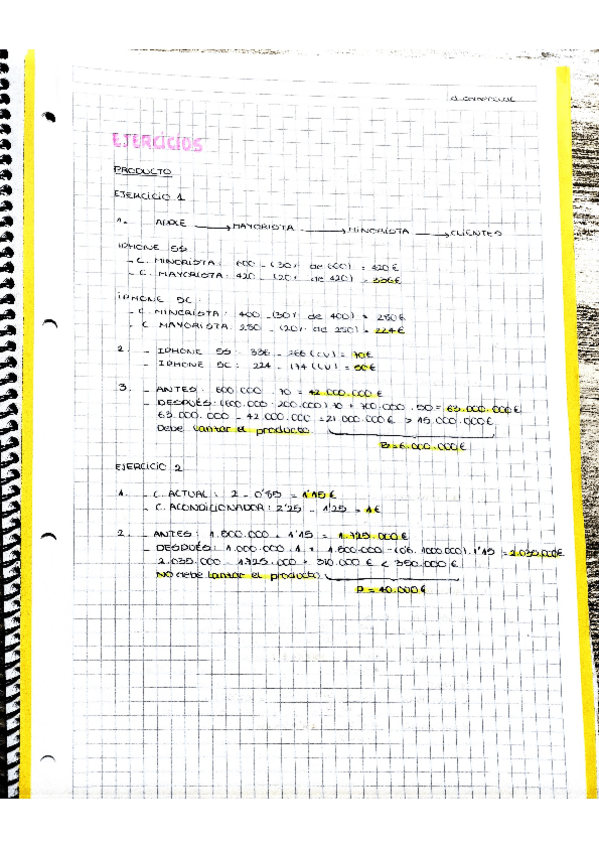 EJERCICIOS
PRODUCTO
EJERCICIO 1
1. APPLE → MAYORISTA → MINORISTA → CLIENTES
IPHONE 5S
- C. MINORISTA: 600 - (30% de 600) = 420€
- C. MAYORISTA: 420 - (20% de 420) = 336€
IPHONE 5C:
- C. MINORISTA: 400 - (30% de 400) = 280€
- C. MAYORISTA: 280 - (20% de 280) = 224€
2. - IPHONE 5S: 336 - 266 (CV) = 70€
- IPHONE 5C: 224 - 174 (CV) = 50€
3. - ANTES: 600.000 · 70 = 42.000.000€
- DESPUÉS: (600.000 - 200.000) 70 + 700.000 · 50 = 63.000.000€
63.000.000 - 42.000.000 = 21.000.000€ > 15.000.000€
Debe lanzar el producto
B = 6.000.000€
EJERCICIO 2
1. - C. ACTUAL: 2 - 0'85 = 1'15€
- C. ACONDICIONADOR: 2'25 - 1'25 = 1€
2. - ANTES: 1.500.000 · 1'15 = 1.725.000€
- DESPUÉS: 1.000.000 · 1 + 1.500.000 - (0'6 · 1000000) · 1'15 = 2.035.000€
2.035.000 - 1.725.000 = 310.000€ < 350.000€
NO debe lanzar el producto
P = 40.000€